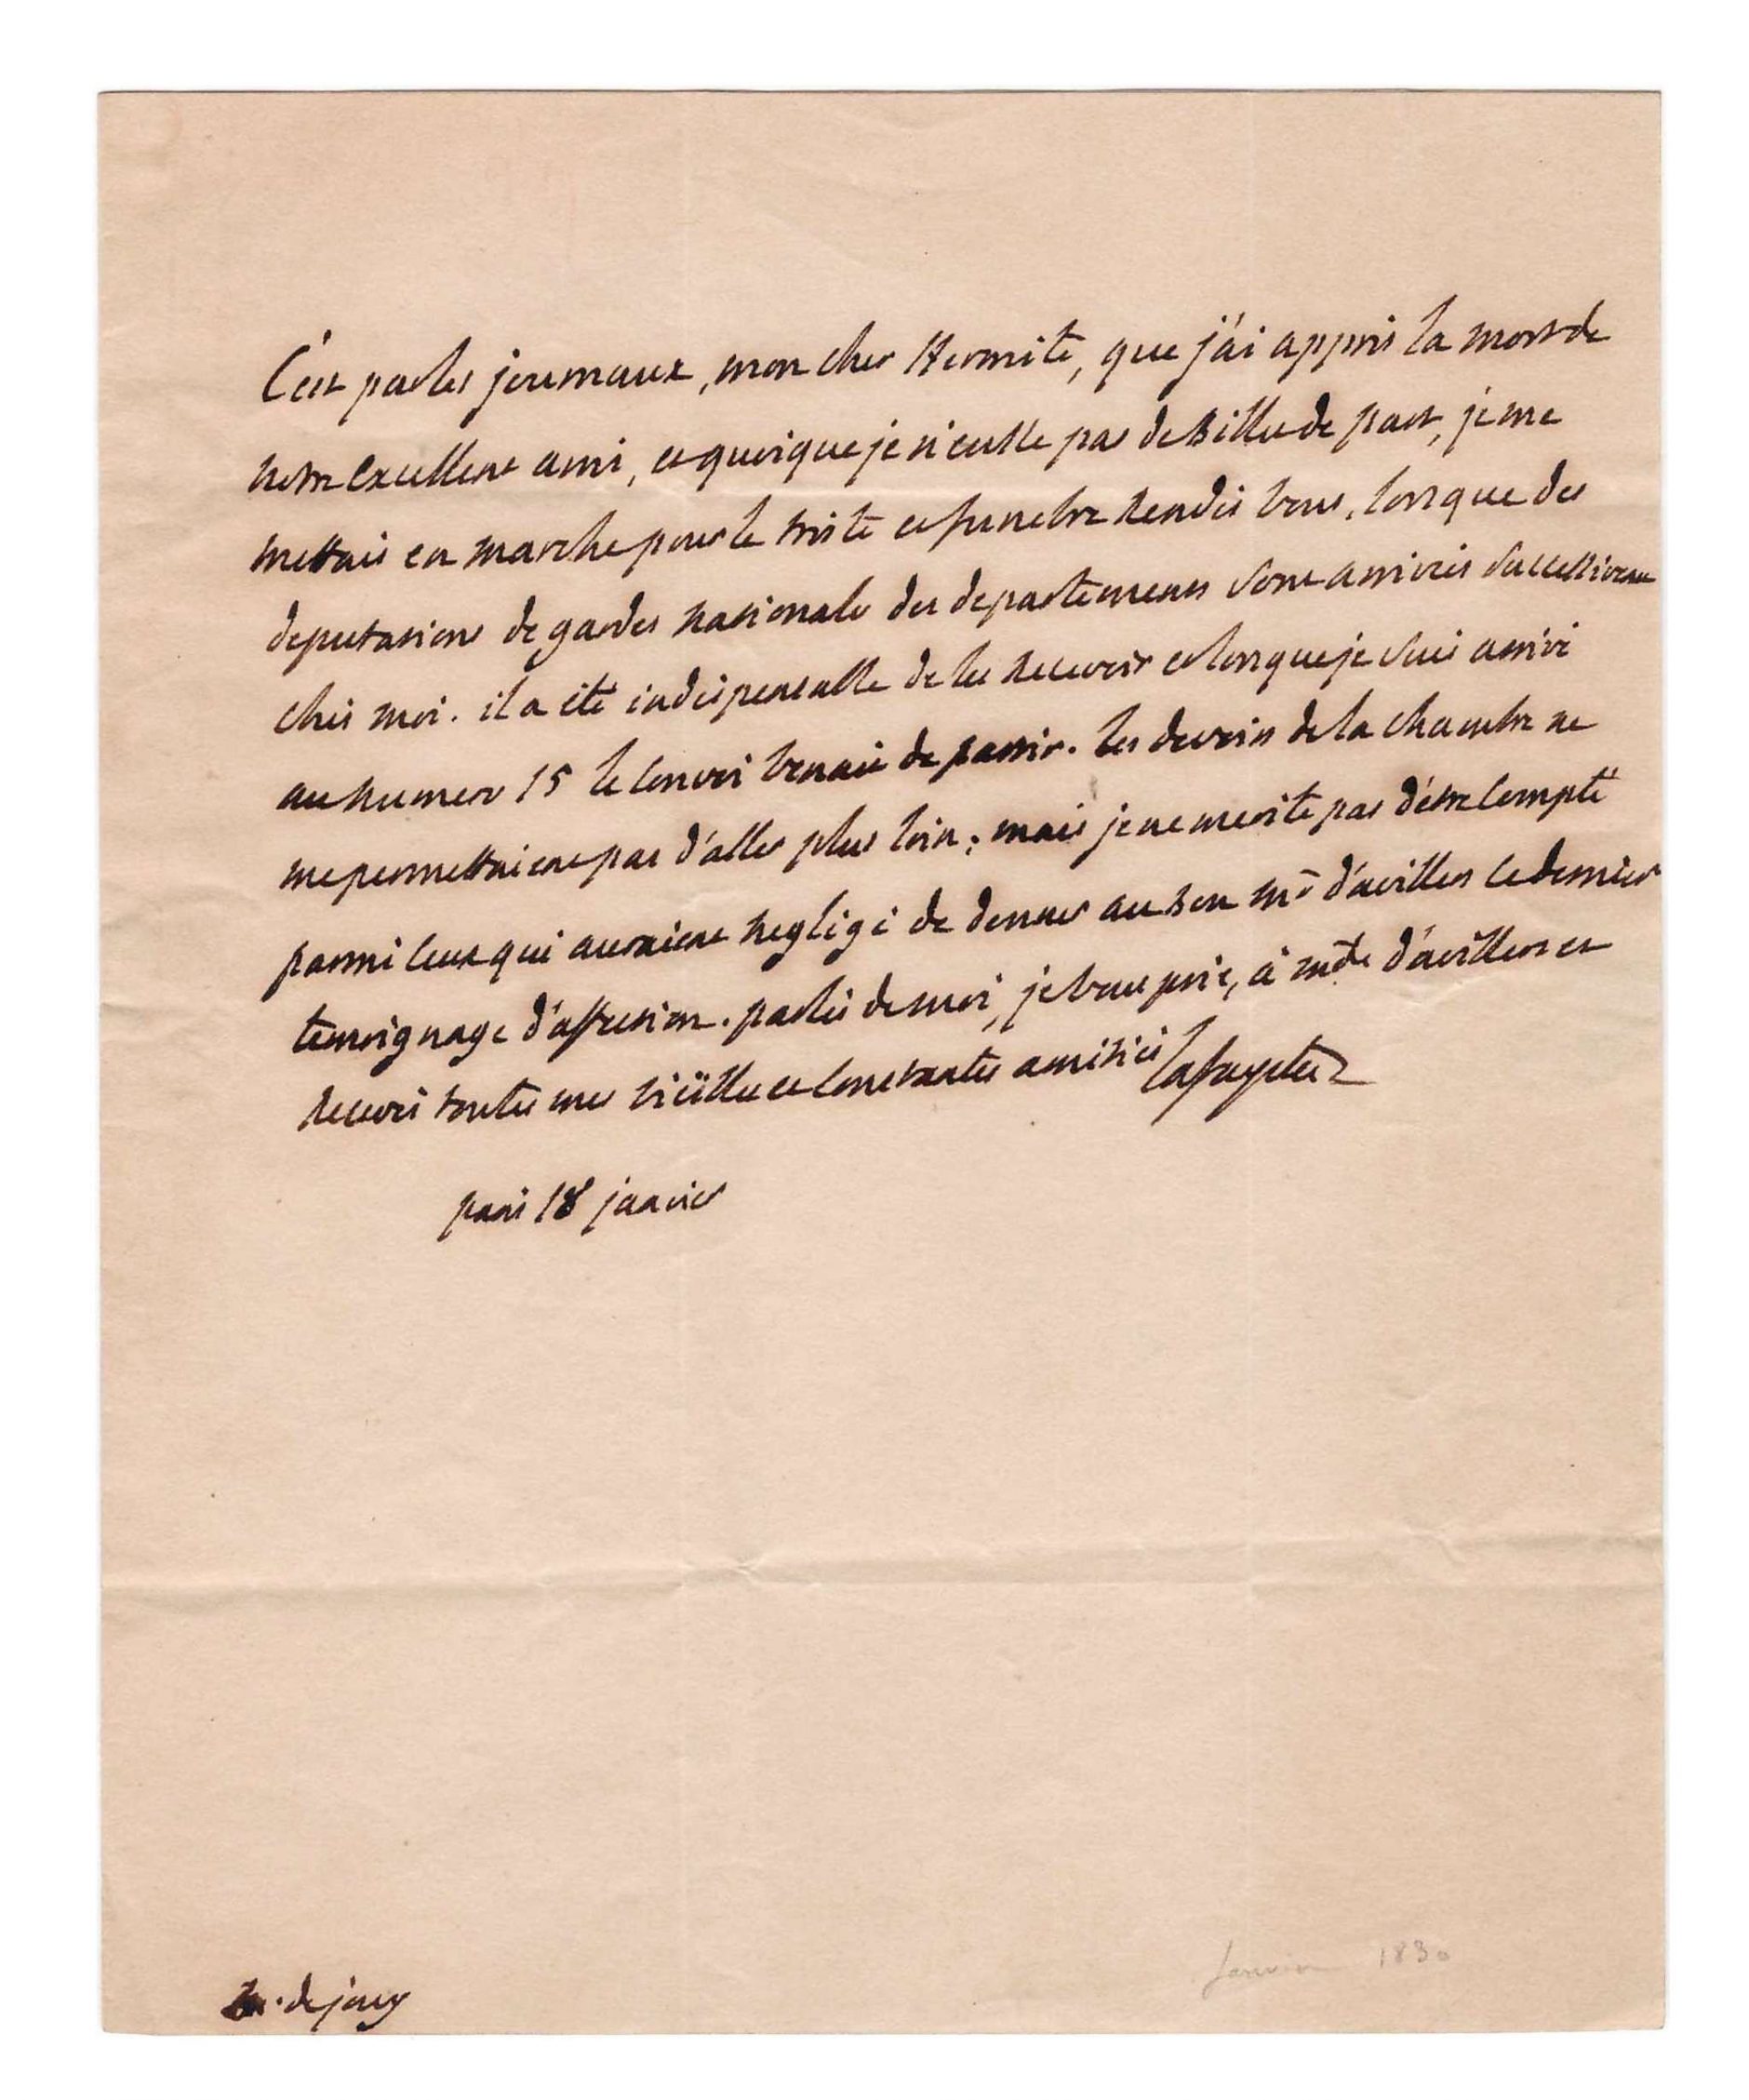 C'est par les journaux, mon cher Hermite, que j'ai appris la mort de
notre excellent ami, et quoique je n'eusse pas de billet de part, je me
mettais en marche pour le triste et funebre rendés vous, lorsque des
deputations de gardes nationales des departemens sont arrivées successivem
chés moi. il a été indispensable de les recevoir et lorsque je suis arrivé
au numero 15 le convoi venait de partir. les devoirs de la chambre ne
me permettaient pas d'aller plus loin; mais je ne merite pas d'être compté
parmi ceux qui auraient negligé de donner au bon mr d'avillers ce dernier
temoignage d'affection. parlés de moi, je vous prie, à mde d'avillers et
recevés toutes mes vieilles et constantes amitiés Lafayette
paris 18 janvier
m. de jouy
Janvier 1830